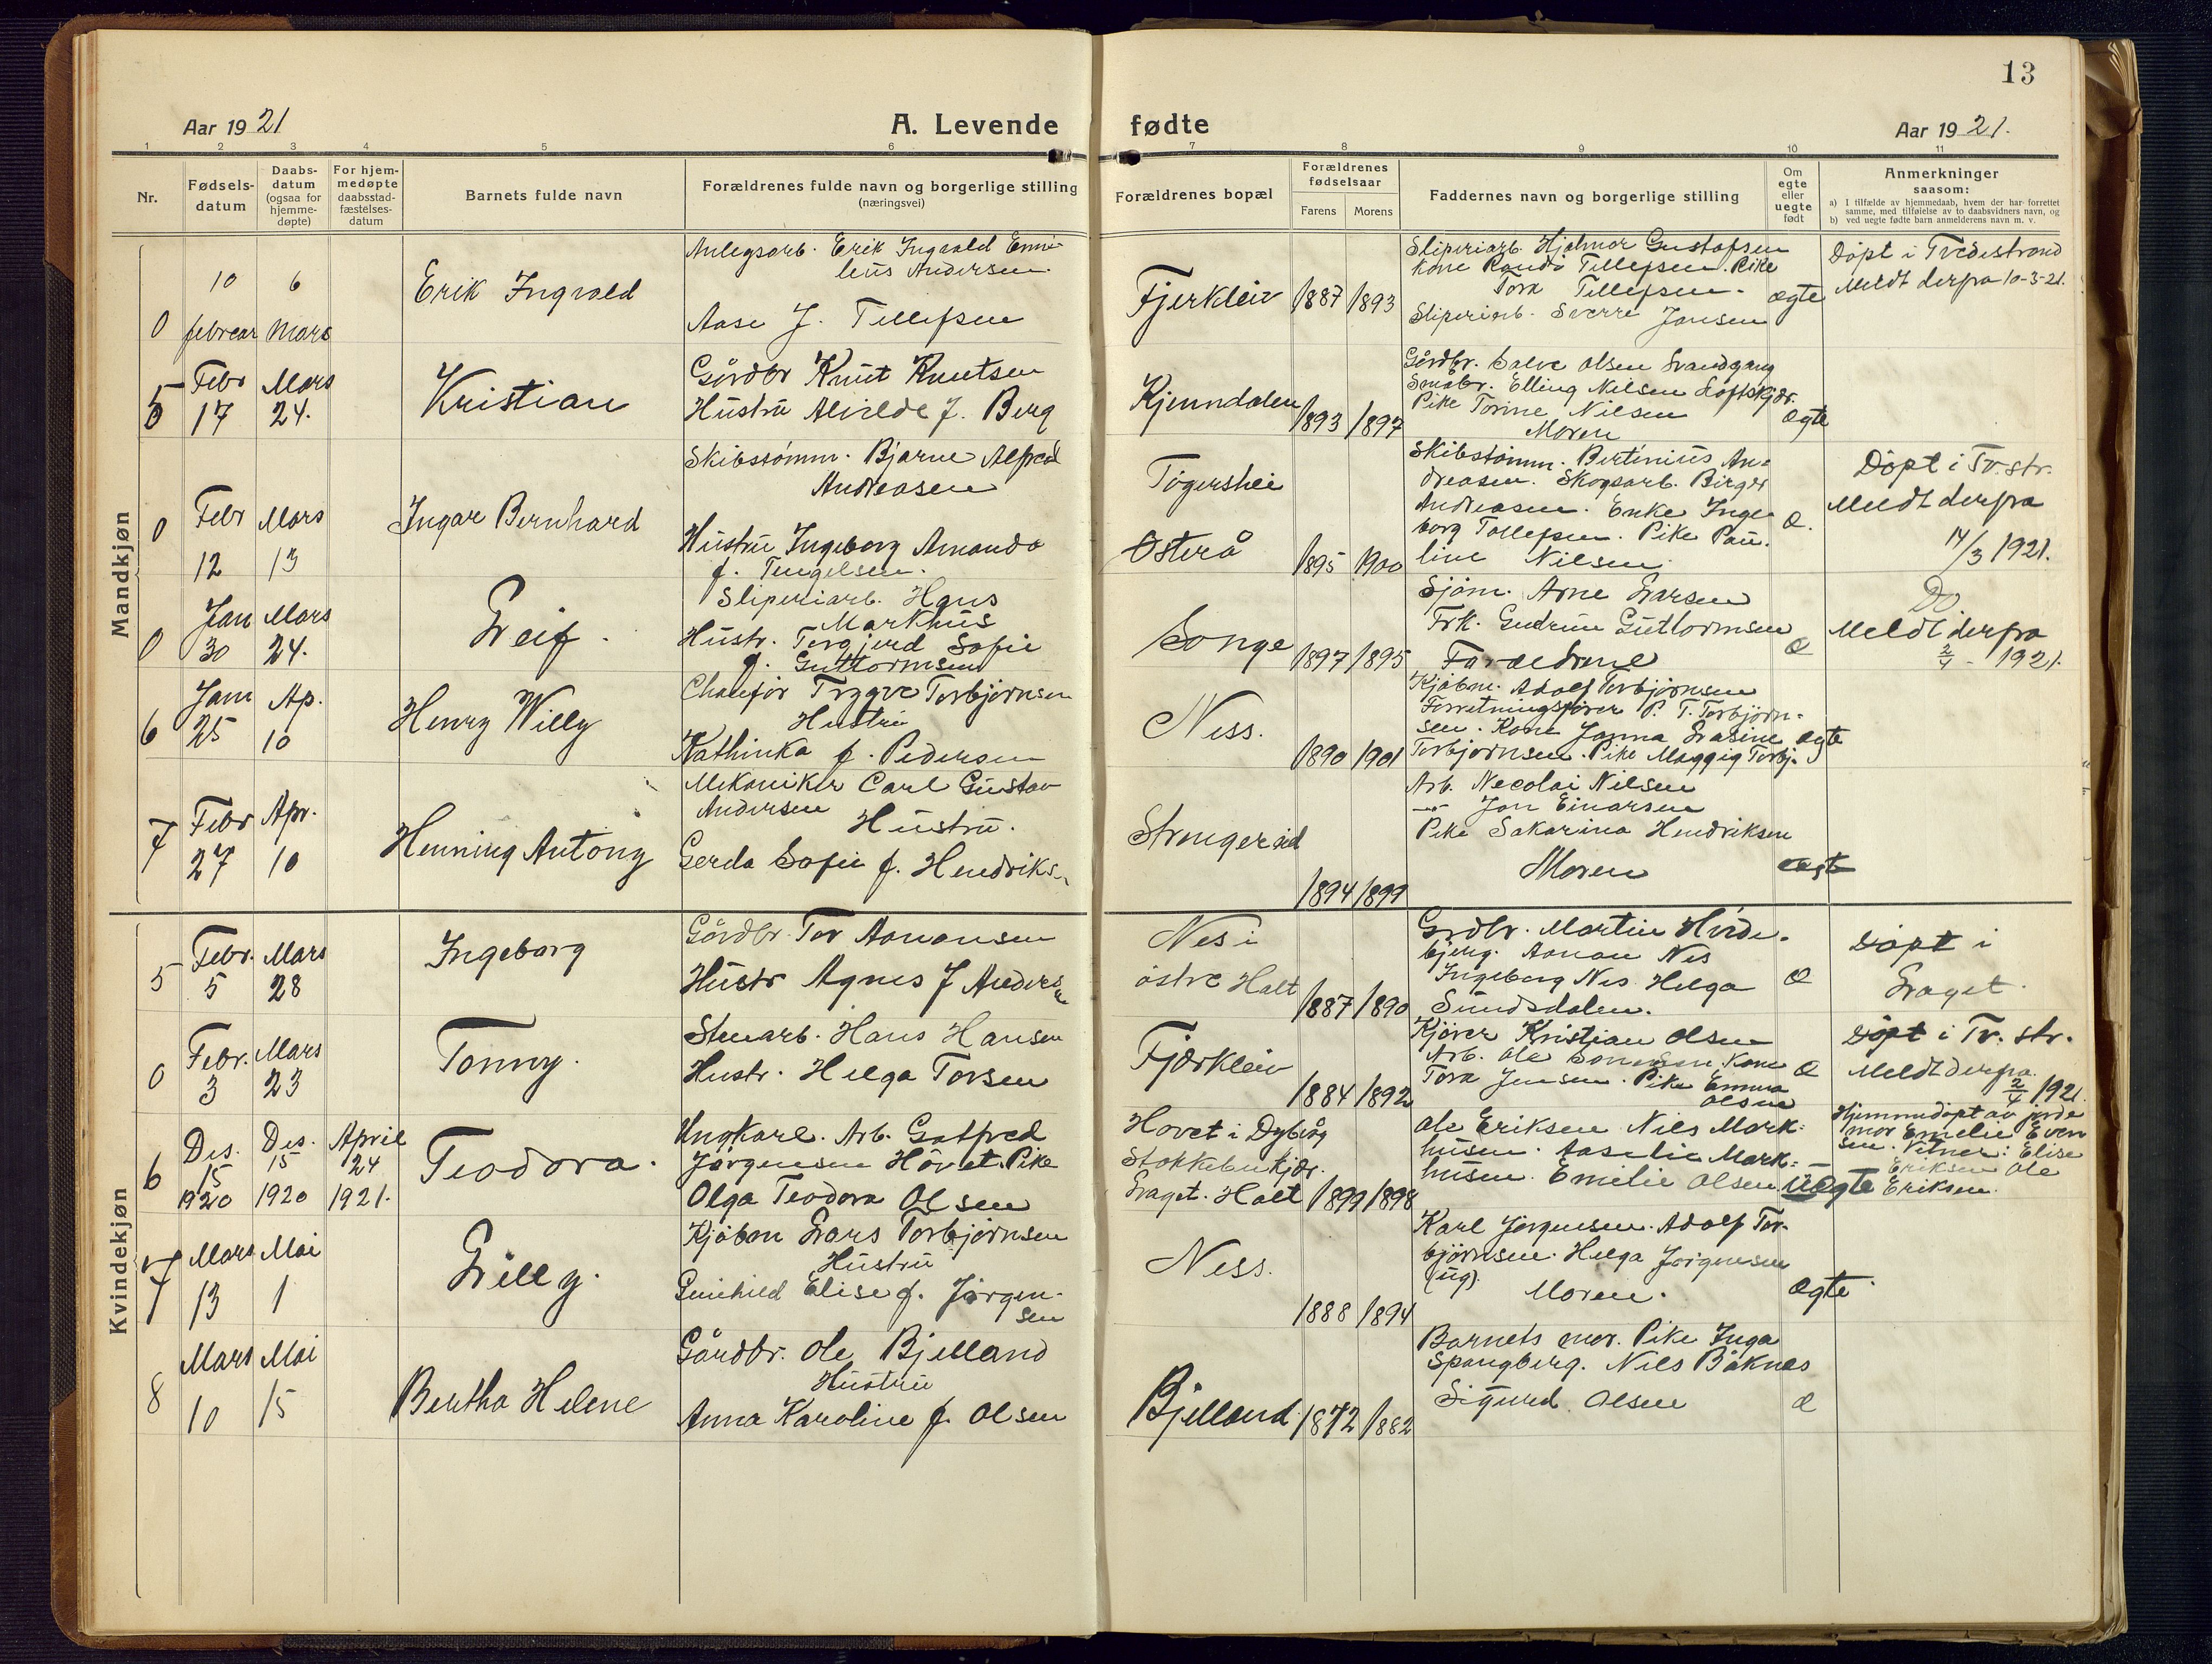 13
Aar 1921
A. Levende fødte
Aar 1921.
1 2 3 4 5 6 7 8 9 10 11
Nr.
Fødsels-
datum
Daabs-
datum
(ogsaa for
hjemme-
døpte)
For hjem-
medøpte
daabsstad-
fæstelses-
datum
Barnets fulde navn
Forældrenes fulde navn og borgerlige stilling
(næringsvei)
Forældrenes bopæl
Forældrenes
fødselsaar
Farens Morens
Faddernes navn og borgerlige stilling
Om
egte
eller
uegte
født
Anmerkninger
saasom:
a) I tilfælde av hjemmedaab, hvem der har forrettet
samme, med tilføielse av to daabsvidners navn, og
b) ved uegte fødte barn anmelderens navn m. v.
Mandkjøn
0
10
februar
6
Mars
Erik Ingvald
Anlegsarb. Erik Ingvald Emi-
lius Andersen
Aase J. Tellefsen
Fjerkleiv
1887 1893
Sliperiarb. Hjalmar Gustafsen
Kone Randi Tellefsen. Pike
Tora Tellefsen.
Sliperiarb. Sverre Jansen
ægte
Døpt i Tvedestrand
Meldt derfra 10-3-21.
5
Febr
17
Mars
24.
Kristian
Gårdbr Knut Knutsen
Hustru Alvilde f. Berg
Kjenndalen
1893 1897
Gårdbr. Salve Olsen Sandgang
Småbr. Elling Nilsen Løftskjær.
Pike Torine Nilsen
Moren
Ægte
0
Febr
12
Mars
13
Ingar Bernhard
Skibstømm. Bjarne Alfred
Andreasen
Hustru Ingeborg Amanda
f. Tengelsen.
Tøgershei
Østerå
1895 1900
Skibstømm. Bertinius An-
dreasen. Skogsarb. Birger
Andreasen. Enke Inge-
borg Tollefsen. Pike Pau-
line Nilsen
Æ.
Døpt i Tv.str.
Meldt derfra
14/3 1921.
0
Jan
30
Mars
24.
Leif.
Sliperiarb. Hans
Markhus
Hustr. Torgjerd Sofie
f. Guttormsen
Songe
1897 1895
Sjøm. Arne Larsen
Frk. Gudrun Guttormsen
Forældrene
Æ
Do
Meldt derfra
2/4 - 1921.
6
Jan
25
Ap.
10
Henry Willy
Chaufør Trygve Torbjørnsen
Hustru
Kathinka f. Pedersen
Ness.
1890 1901
Kjøbm. Adolf Torbjørnsen
Forretningsfører P. T. Torbjørn-
sen. Kone Janna Lasine
Torbjørnsen. Pike Maggig Torbj.
ægte
7
Febr
27
Apr.
10
Henning Antony
Mekaniker Carl Gustav
Andersen
Hustru.
Gerda Sofie f. Hendriksen
Strengereid
1894 1899
Arb. Necolai Nilsen
— Jan Einarsen
Pike Sakarina Hendriksen
Moren
ægte
Kvindekjøn
5
Febr.
5
Mars
28
Ingeborg
Gårdbr. Tor Aanonsen
Hustr Agnes f Andersen
Nes i
østre Halt
1887 1890
Grdbr. Martin Hvide-
bjerg. Aanon Nes
Ingeborg Nes Helga
Sundsdalen.
Æ
Døpt i
Laget.
0
Febr.
3
Mars
23
Tonny.
Stenarb. Hans Hansen
Hustr. Helga Torsen
Fjærkleiv
1884 1892
Kjører Kristian Olsen
Arb. Ole Sorensen, Kone
Tora Jensen. Pike Emma
Olsen
Æ
Døpt i Tv. str.
Meldt derfra
2/4 1921.
6
Des.
15
1920
Des.
15
1920
April
24
1921.
Teodora.
Ungkarl. Arb. Gotfred
Jørgensen Hovet. Pike
Olga Teodora Olsen
Hovet i Dybvåg
Stokkelundkjær.
Laget. Halt
1899 1898
Ole Eriksen Nils Mark-
husen. Aaselie Mark-
husen. Emilie Olsen
Uægte
Hjemmedøpt av jorde
mor Emelie Even
sen. Vitner: Elise
Eriksen Ole
Eriksen.
7
Mars
13
Mai
1
Lilly.
Kjøbm Lars Torbjørnsen
Hustru
Gunhild Elise f. Jørgen-
sen
Ness.
1888 1894
Karl Jørgensen. Adolf Tor-
bjørnsen. Helga Jørgensen
(ug).
Moren.
Ægte.
8
Mars
10
Mai
15
Bertha Helene
Gårdbr. Ole Bjelland
Hustru
Anna Karoline f. Olsen
Bjelland
1872 1882
Barnets mor. Pike Inga
Spangberg. Nils Båknes
Sigurd Olsen
Æ